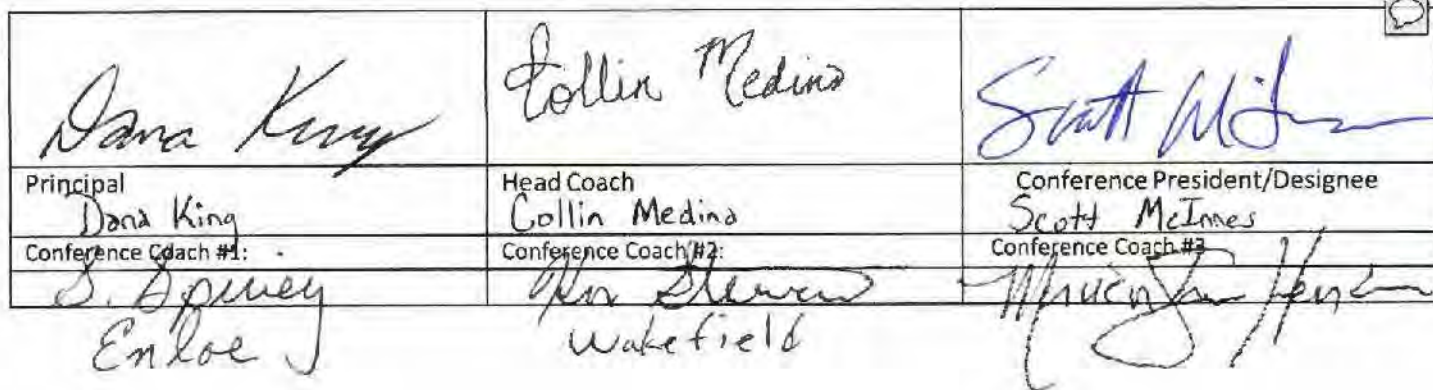 Dana King
Collin Medina
Scott
Principal
Dana King
Head Coach
Collin Medina
Conference President/Designee
Scott McInnes
Conference Coach #1:
Conference Coach #2:
Conference Coach #3
S. Spivey
Enloe
Wakefield